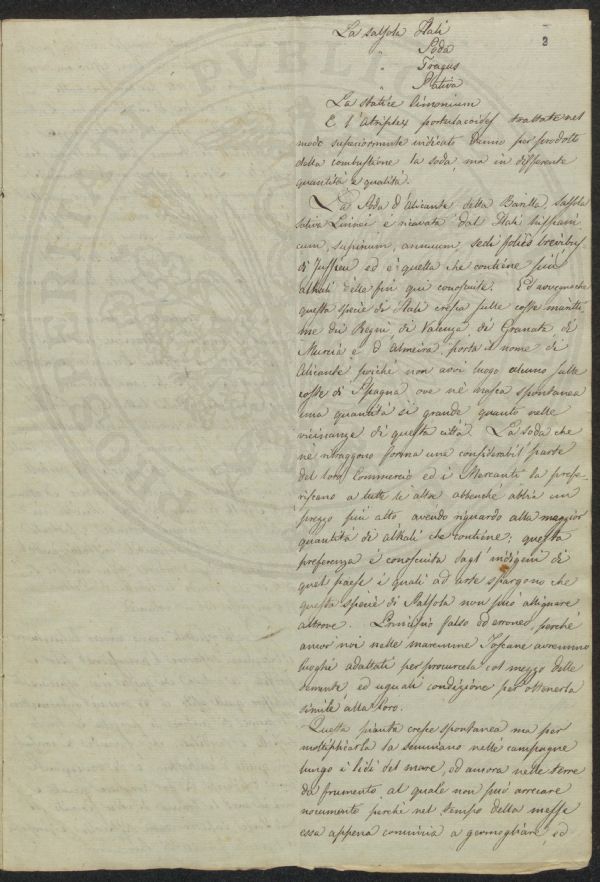 2
La salsola Kali
" Soda
" Tragus
" Sativa
La statice limonium
E l'Atriplex portulacoides trattate nel
modo superiormente indicato danno per prodotto
della combustione la soda, ma in differente
quantità e qualità.
La Soda d'Alicante della Barilla, salsola
sativa Linnei è ricavata dal Kali hispani
cum, supinum, annuum, sedi foliis brevibus
di Jussieu ed è quella che contiene più
alkali delle fin qui conosciute. Ed avvegnache
questa specie di Kali cresca sulle coste maritti
me dei Regni di Valenza, di Granata di
Murcia e d'Almeira, porta il nome di
Alicante poiche non avvi luogo alcuno sulle
coste di Spagna ove ne nasca spontanea
una quantità si grande quanto nelle
vicinanze di questa città. La soda che
ne ritraggono forma una considerabil parte
del loro Commercio ed i Mercanti la prefe-
riscano a tutte le altre abbenché abbia un
prezzo più alto avendo riguardo alla maggior
quantità di alkali che contiene; questa
preferenza è conosciuta dagl'indigeni di
quel paese i quali ad arte spargono che
questa specie di Salsola non può allignare
altrove. Principio falso ed erroneo, perché
ancor noi nelle maremme Toscane avremmo
luoghi adattati per procurcela col mezzo delle
semente, ed uguali condizione per ottenerla
simile alla loro.
Questa pianta cresce spontanea ma per
moltiplicarla la seminano nelle campagne
lungo i lidi del mare, ed ancora nelle terre
da frumento al quale non può arrecare
nocumento perchè nel tempo della messe
essa appena comincia a germogliare, ed